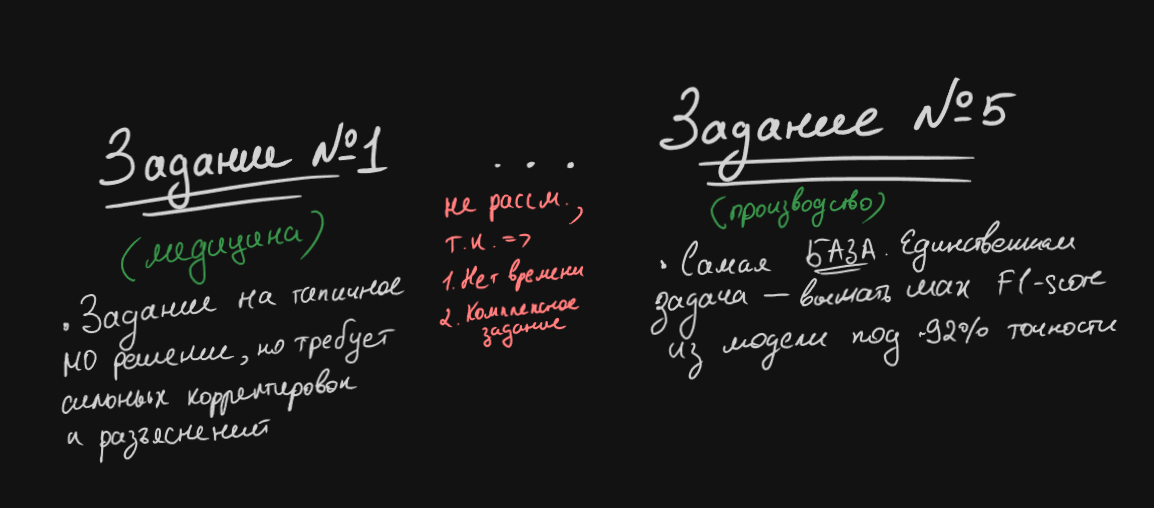 Задание №1
(медицина)
• Задание на типичное
МО решение, но требует
сильных корректировок
и разъяснений
...
не рассм.,
т.к. =>
1. Нет времени
2. Комплексное
задание
Задание №5
(производство)
• Самая БАЗА. Единственная
задача — выжать max F1-score
из модели под ~92% точности